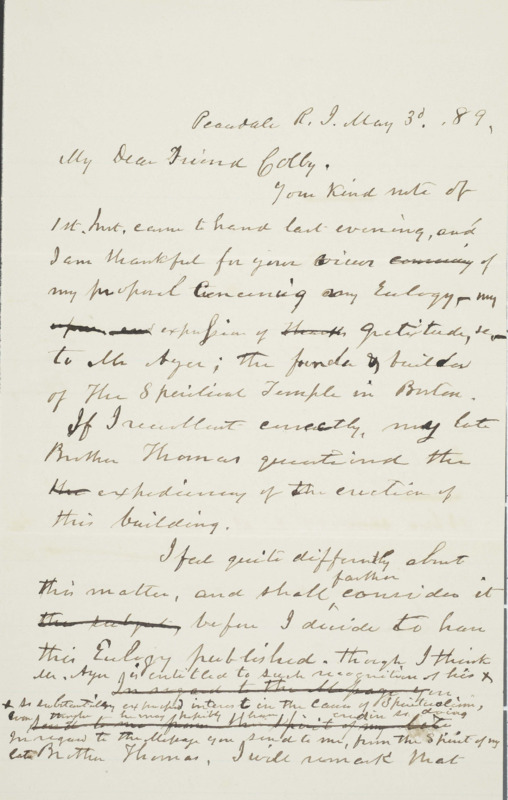 Peacedale R. I. May 3d. .89,
My Dear Friend Colby.
Your kind note of
1st. Inst. came to hand last evening, and
I am thankful for your views of
my proposal concerning my Eulogy, my
expression of gratitude, &c,
to Mr Ayer; the funder & builder
of The Spiritual Temple in Boston.
If I recollect correctly, my late
Brother Thomas questioned the
the expediency of the erection of
this building.
I feel quite differently about
this matter, and shall farther consider it
the subject, before I decide to have
this Eulogy published. though I think
Mr. Ayer is entitled to such recognition of his x
In regard to the Message you
x so substantially expressed interest in the cause of Spiritualism,
in so doing
In regard to the Message you send to me, from the Spirit of my
late Brother Thomas, I will remark that